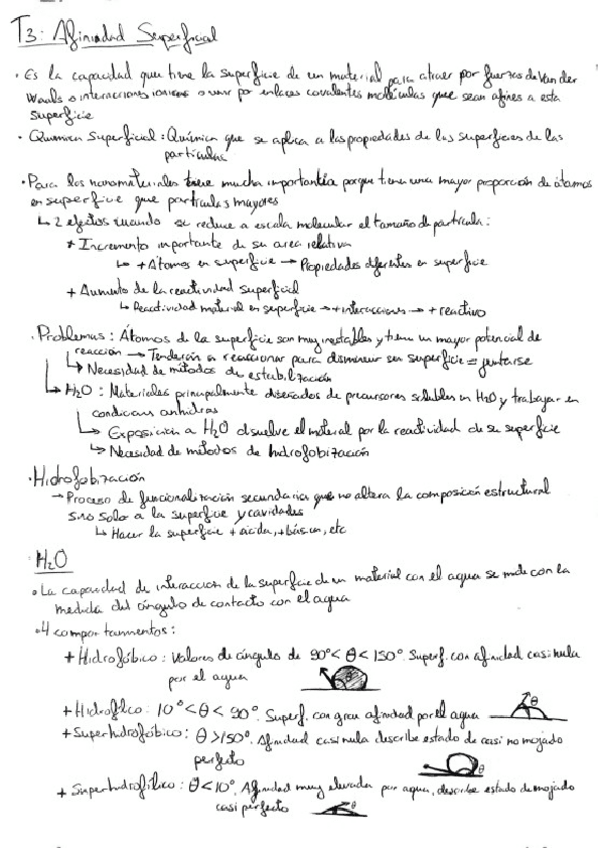 T3: Afinidad Superficial
· Es la capacidad que tiene la superficie de un material para atraer por fuerzas de Van der
Waals o interacciones ionicas o unir por enlaces covalentes moléculas que sean afines a esta
superficie
· Quimica Superficial: Química que se aplica a las propiedades de las superficies de las
particulas
· Para los nanomateriales tiene mucha importancia porque tienen una mayor proporción de átomos
en superficie que particulas mayores
↳ 2 efectos cuando se reduce a escala molecular el tamaño de particula:
+ Incremento importante de su area relativa
↳ + Átomos en superficie → Propiedades diferentes en superficie
+ Aumento de la reactividad superficial
↳ Reactividad material en superficie → + interacciones → + reactivo
· Problemas: Átomos de la superficie son muy inestables y tienen un mayor potencial de
reacción → Tenderán a reaccionar para disminuir su superficie = juntarse
↳ Necesidad de métodos de estabilización
↳ H₂O: Materiales principalmente diseñados de precursores solubles en H₂O y trabajar en
condicions anhidras
↳ Exposición a H₂O disuelve el material por la reactividad de su superficie
↳ Necesidad de métodos de hidrofobización
· Hidrofobización
→ Proceso de funcionalización secundaria que no altera la composición estructural
sino solo a la superficie y cavidades
↳ Hacer la superficie + ácida, + básica, etc
· H₂O
· La capacidad de interacción de la superficie de un material con el agua se mide con la
medida del ángulo de contacto con el agua
· 4 comportamientos:
+ Hidrofóbico: Valores de ángulo de 90° < θ < 150°. Superf. con afinidad casi nula
por el agua
θ
+ Hidrofílico: 10° < θ < 90°. Superf. con gran afinidad por el agua
θ
+ Superhidrofóbico: θ > 150°. Afinidad casi nula describe estado de casi no mojado
perfecto
θ
+ Superhidrofílico: θ < 10°. Afinidad muy elevada por agua, describe estado de mojado
casi perfecto
θ